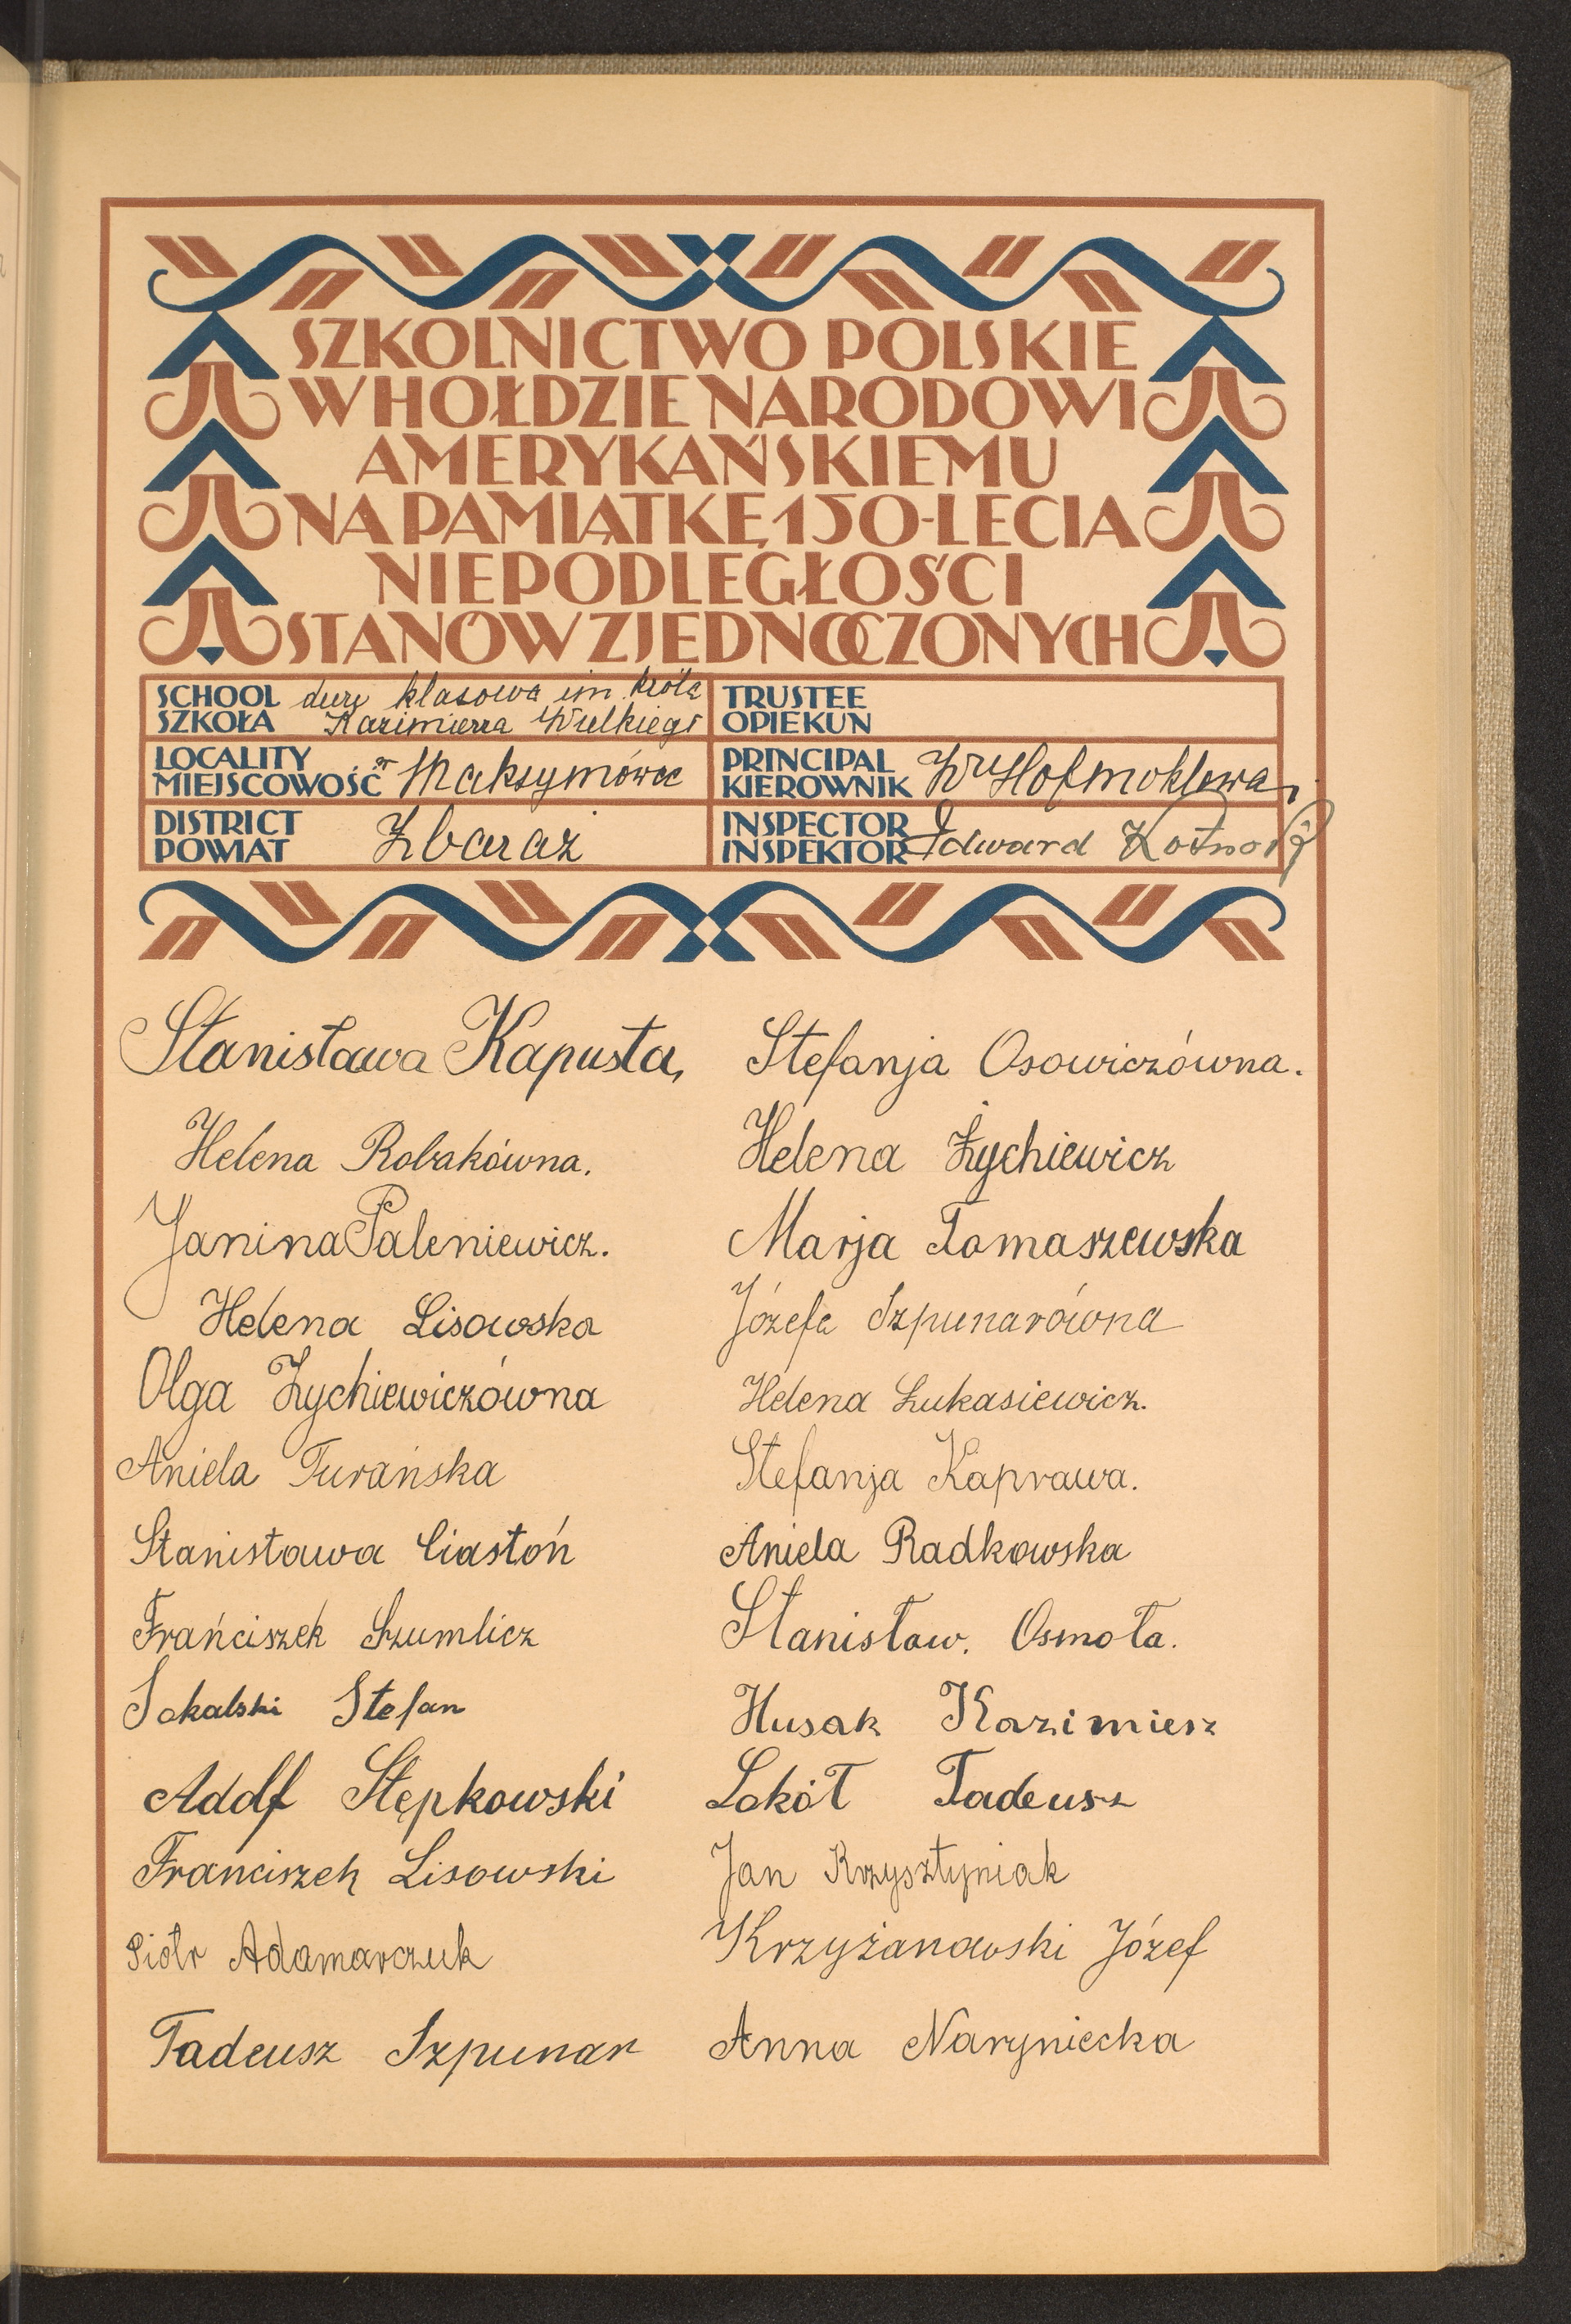 SZKOLNICTWO POLSKIE
W HOŁDZIE NARODOWI
AMERYKAŃSKIEMU
NA PAMIĄTKĘ 150-LECIA
NIEPODLEGŁOŚCI
STANÓW ZJEDNOCZONYCH
SCHOOL
SZKOŁA
klasowa im. Króla
Kazimierza Wielkiego
TRUSTEE
OPIEKUN
LOCALITY
MIEJSCOWOŚĆ
Maksymówce
PRINCIPAL
KIEROWNIK
Hofmoklowa
DISTRICT
POWIAT
Zbaraż
INSPECTOR
INSPEKTOR
Edward
Stanisława Kapusta,
Stefanja Osowiczówna.
Helena Robakówna.
Helena Żychiewicz
Janina Paleniewicz.
Marja Tomaszewska
Helena Lisowska
Józefa Szpunarówna
Olga Żychiewiczówna
Helena Łukasiewicz.
Aniela Turańska
Stefanja Kaprawa.
Stanisława Ciastoń
Aniela Radkowska
Frańciszek Szumlicz
Stanisław. Osmoła.
Sokalski Stefan
Husak Kazimiesz
Adolf Stępkowski
Sokół Tadeusz
Franciszek Lisowski
Jan Krzysztyniak
Piotr Adamarczuk
Krzyżanowski Józef
Tadeusz Szpunar
Anna Naryniecka